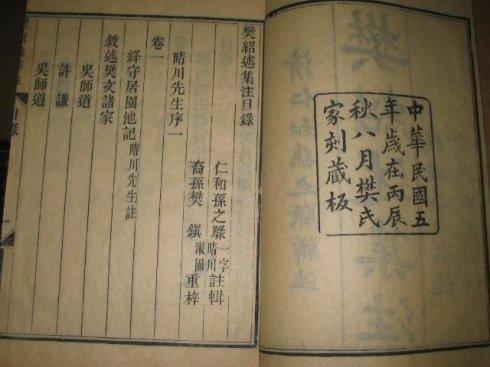 中華民國五
年歲在丙辰
秋八月樊氏
家刻藏板
樊紹述集注目錄
仁和孫之騄一字晴川註輯
裔孫樊鎮漱圃重梓
晴川先生序一
卷一
絳守居園池記晴川先生註
敘述樊文諸家
吳師道
許謙
吳師道